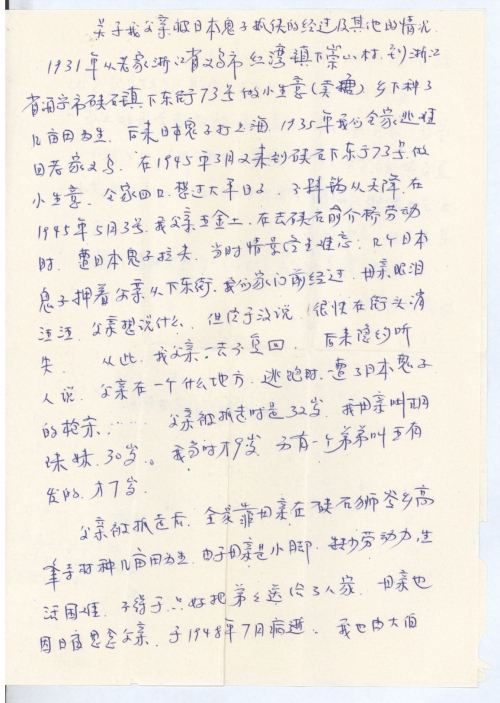 关于我父亲被日本鬼子抓伕的经过及其他的情况.
1931年从老家浙江省义乌市红湾镇下崇山村.到浙江
省海宁市硖石镇下东街73号做小生意(卖糖)乡下种了
几亩田为生. 后来日本鬼子打上海. 1935年我们全家逃难
回老家义乌. 在1945年3月又来到硖石下东街73号.做
小生意. 全家四口.想过太平日子. 不料祸从天降.在
1945年5月3号.我父亲王金土.在去硖石前介桥劳动
时. 遭日本鬼子拉夫. 当时情景终生难忘. 几个日本
鬼子押着父亲从下东街.我们家门前经过. 母亲眼泪
汪汪. 父亲想说什么. 但终于没说. 很快在街头消
失. 从此.我父亲一去不复回. 后来隐约听
人说. 父亲在一个什么地方. 逃跑时.遭了日本鬼子
的枪杀...... 父亲被抓走时是32岁. 我母亲叫胡
珠妹.30岁。我当时才9岁 另有一个弟弟叫王有
发的.才7岁.
父亲被抓走后. 全家靠母亲在硖石狮岑乡高
村种几亩田为生.由于母亲是小脚. 缺少劳动力.生
活困难. 不得于.只好把弟弟送给了人家. 母亲也
因日夜思念父亲. 于1948年7月病逝. 我也由大伯